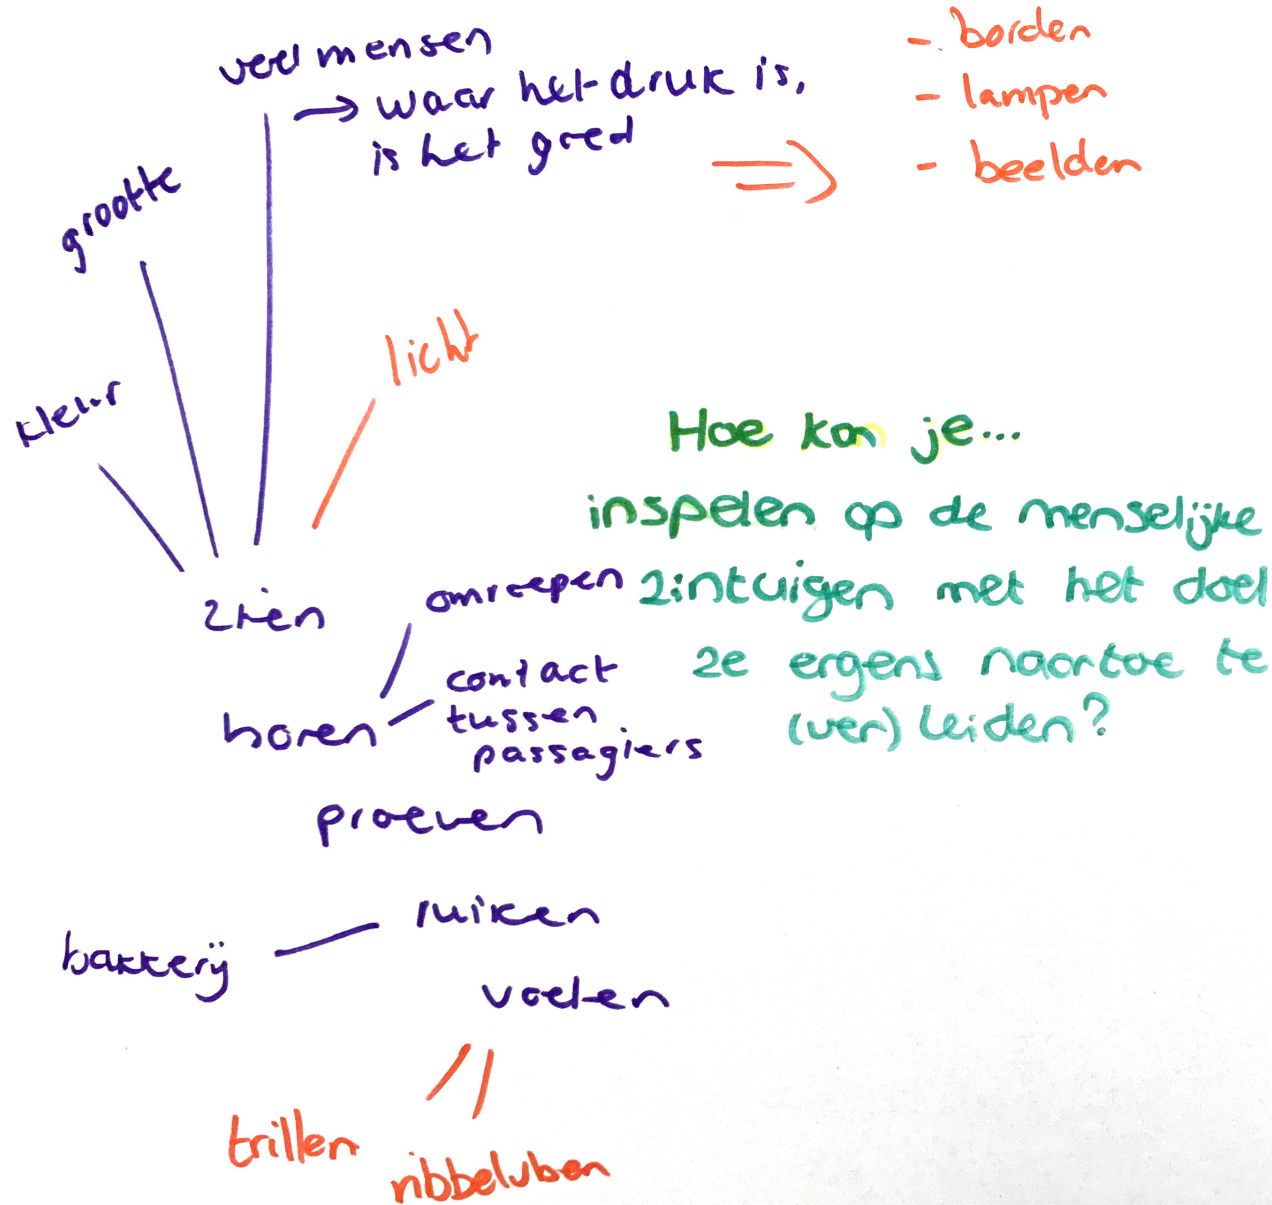 veel mensen
→ waar het druk is,
is het goed
- borden
- lampen
- beelden
grootte
licht
kleur
Hoe kan je...
inspelen op de menselijke
zintuigen met het doel
ze ergens naartoe te
(ver) leiden?
zien
omroepen
contact
tussen
passagiers
horen
proeven
ruiken
bakkerij
voelen
trillen